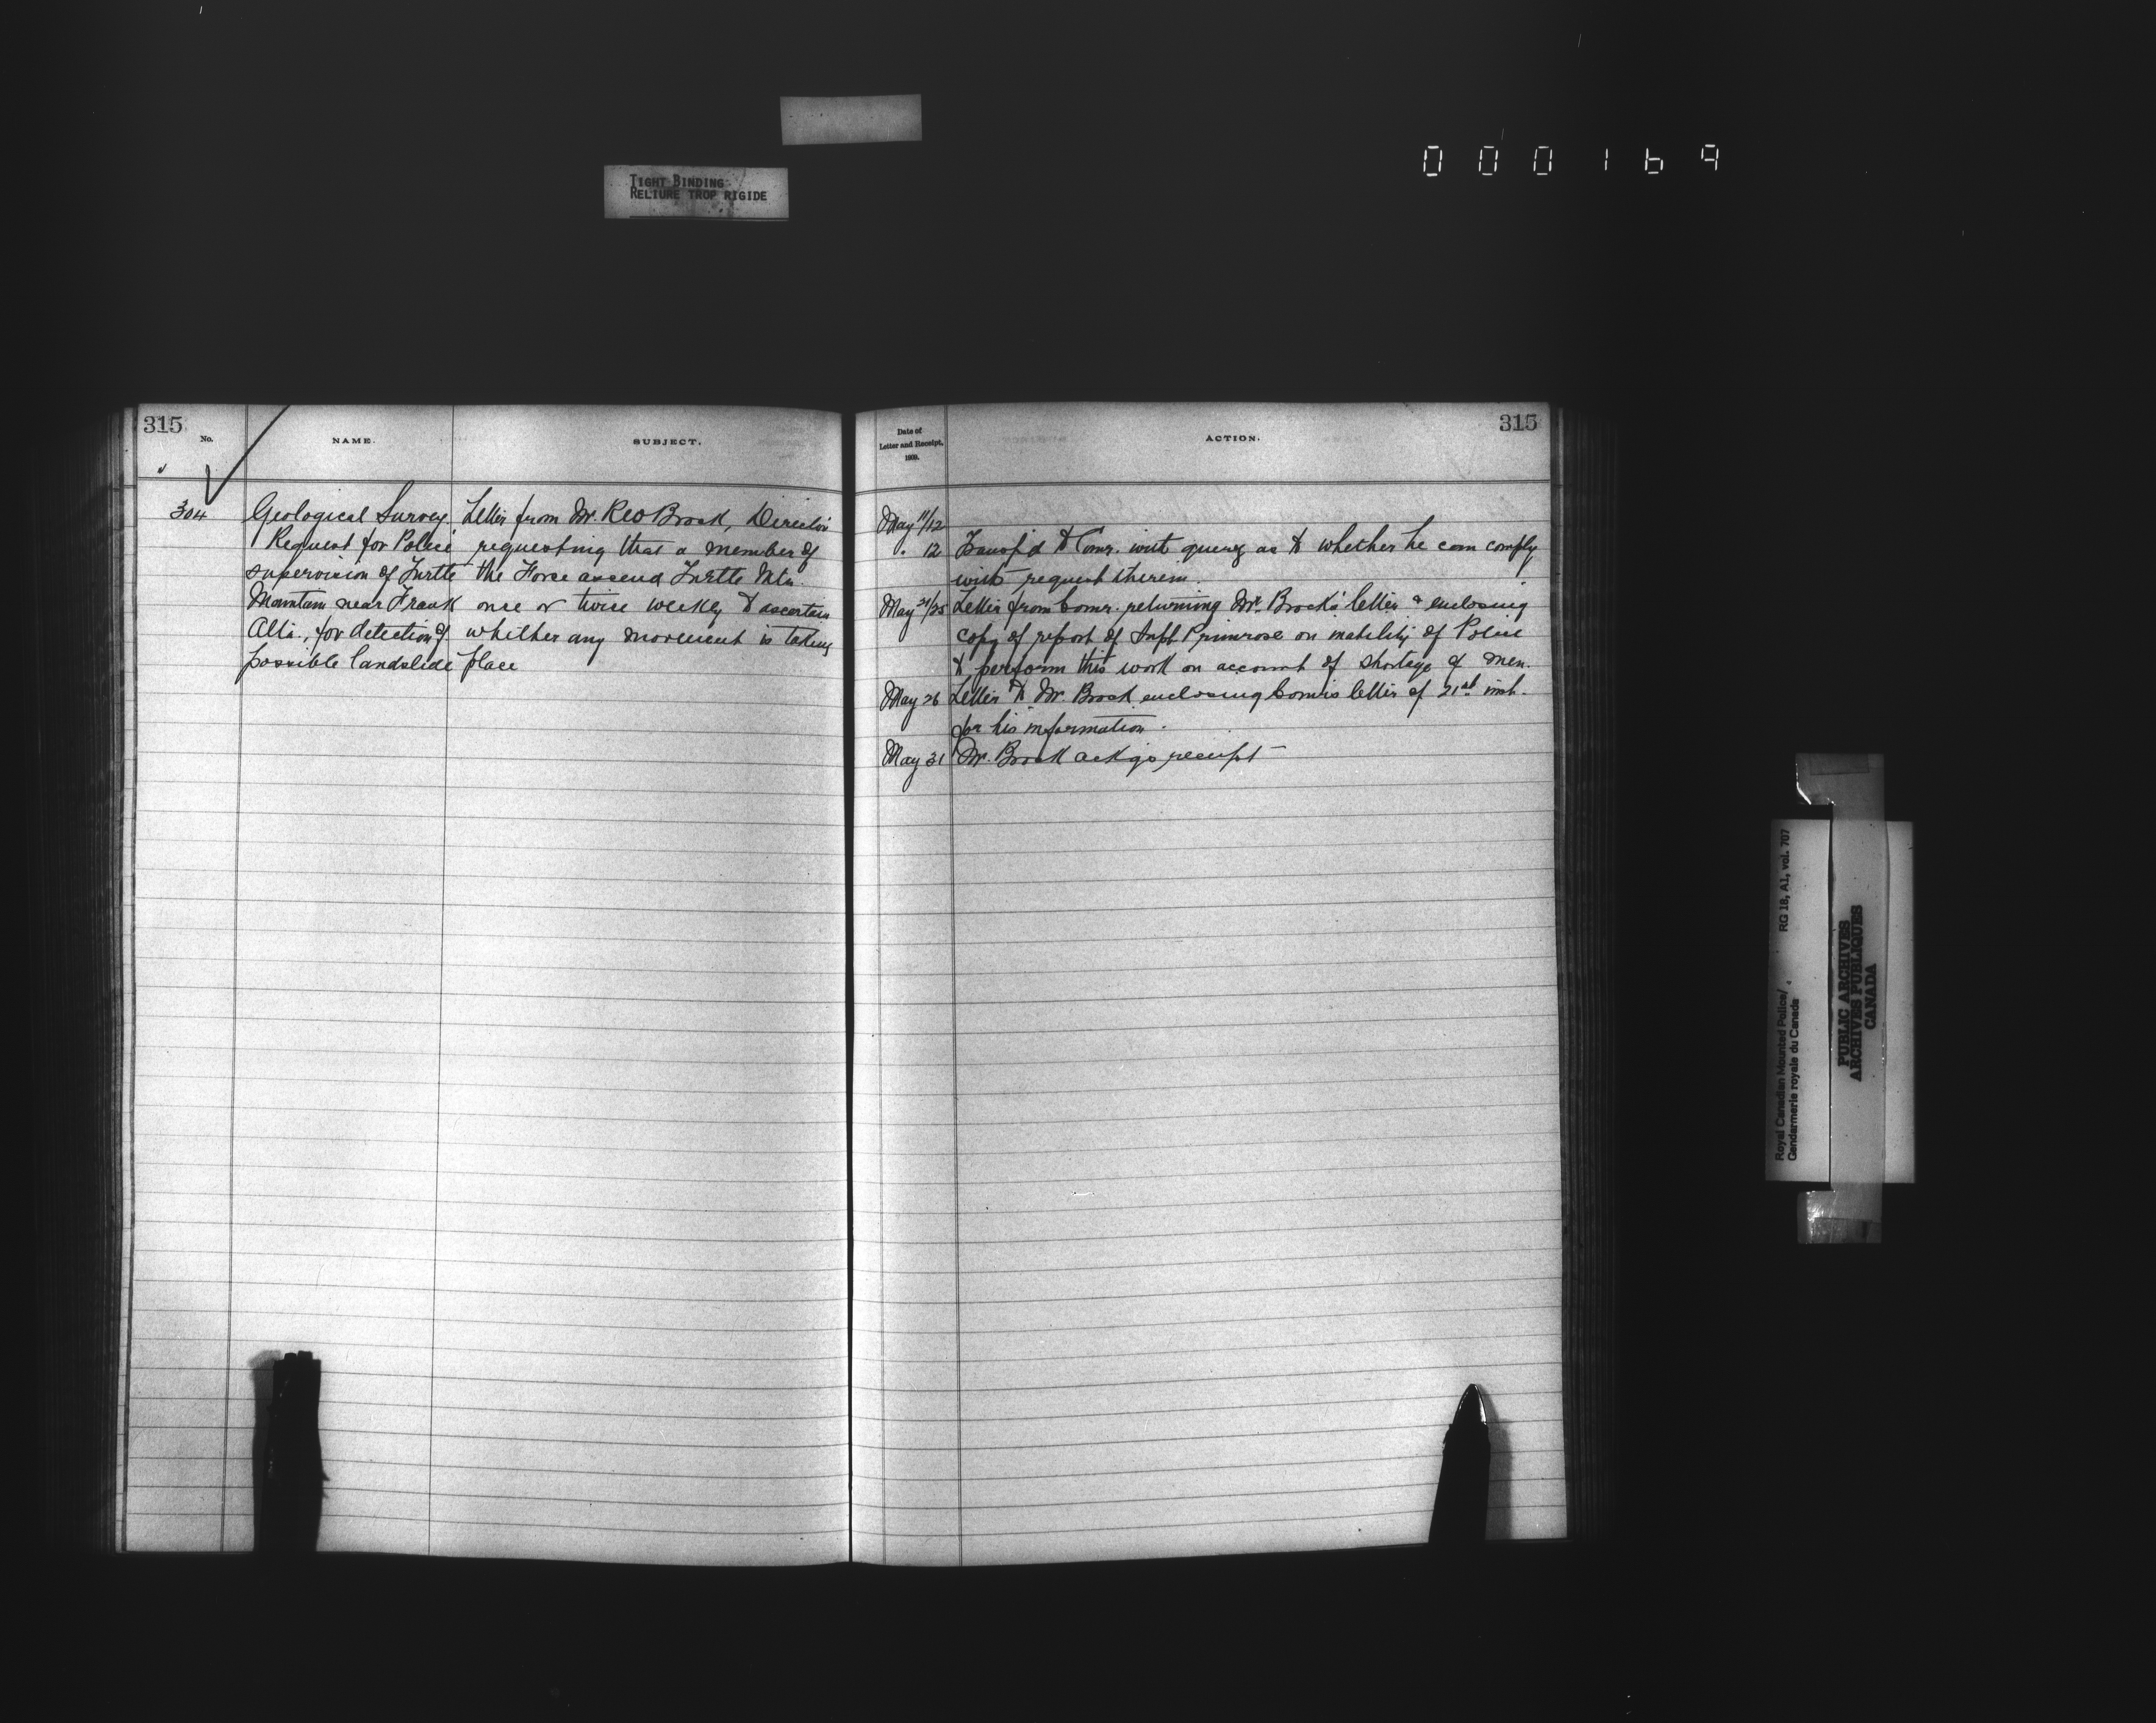 TIGHT BINDING
RELIURE TROP RIGIDE
000169
315
No.
NAME.
SUBJECT.
304
Geological Survey
Request for Police
supervision of Turtle
Mountain near Frank
Alta., for detection of
possible landslide
Letter from Mr. R W Brock, Director
requesting that a member of
the Force ascend Turtle Mtn.
once or twice weekly to ascertain
whether any movement is taking
place
315
Date of
Letter and Receipt,
1909.
ACTION.
May 11/12
" 12 Transf'd to Comr. with query as to whether he can comply
with request therein.
May 21/25 Letter from Comr. returning Mr. Brock's letter & enclosing
copy of report of Supt Primrose on inability of Police
to perform this work on account of shortage of men.
May 26 Letter to Mr. Brock enclosing Comr's letter of 21st inst.
for his information.
May 31 Mr. Brock ackgs receipt
Royal Canadian Mounted Police/
Gendarmerie royale du Canada
RG 18, A1, vol. 707
PUBLIC ARCHIVES
ARCHIVES PUBLIQUES
CANADA